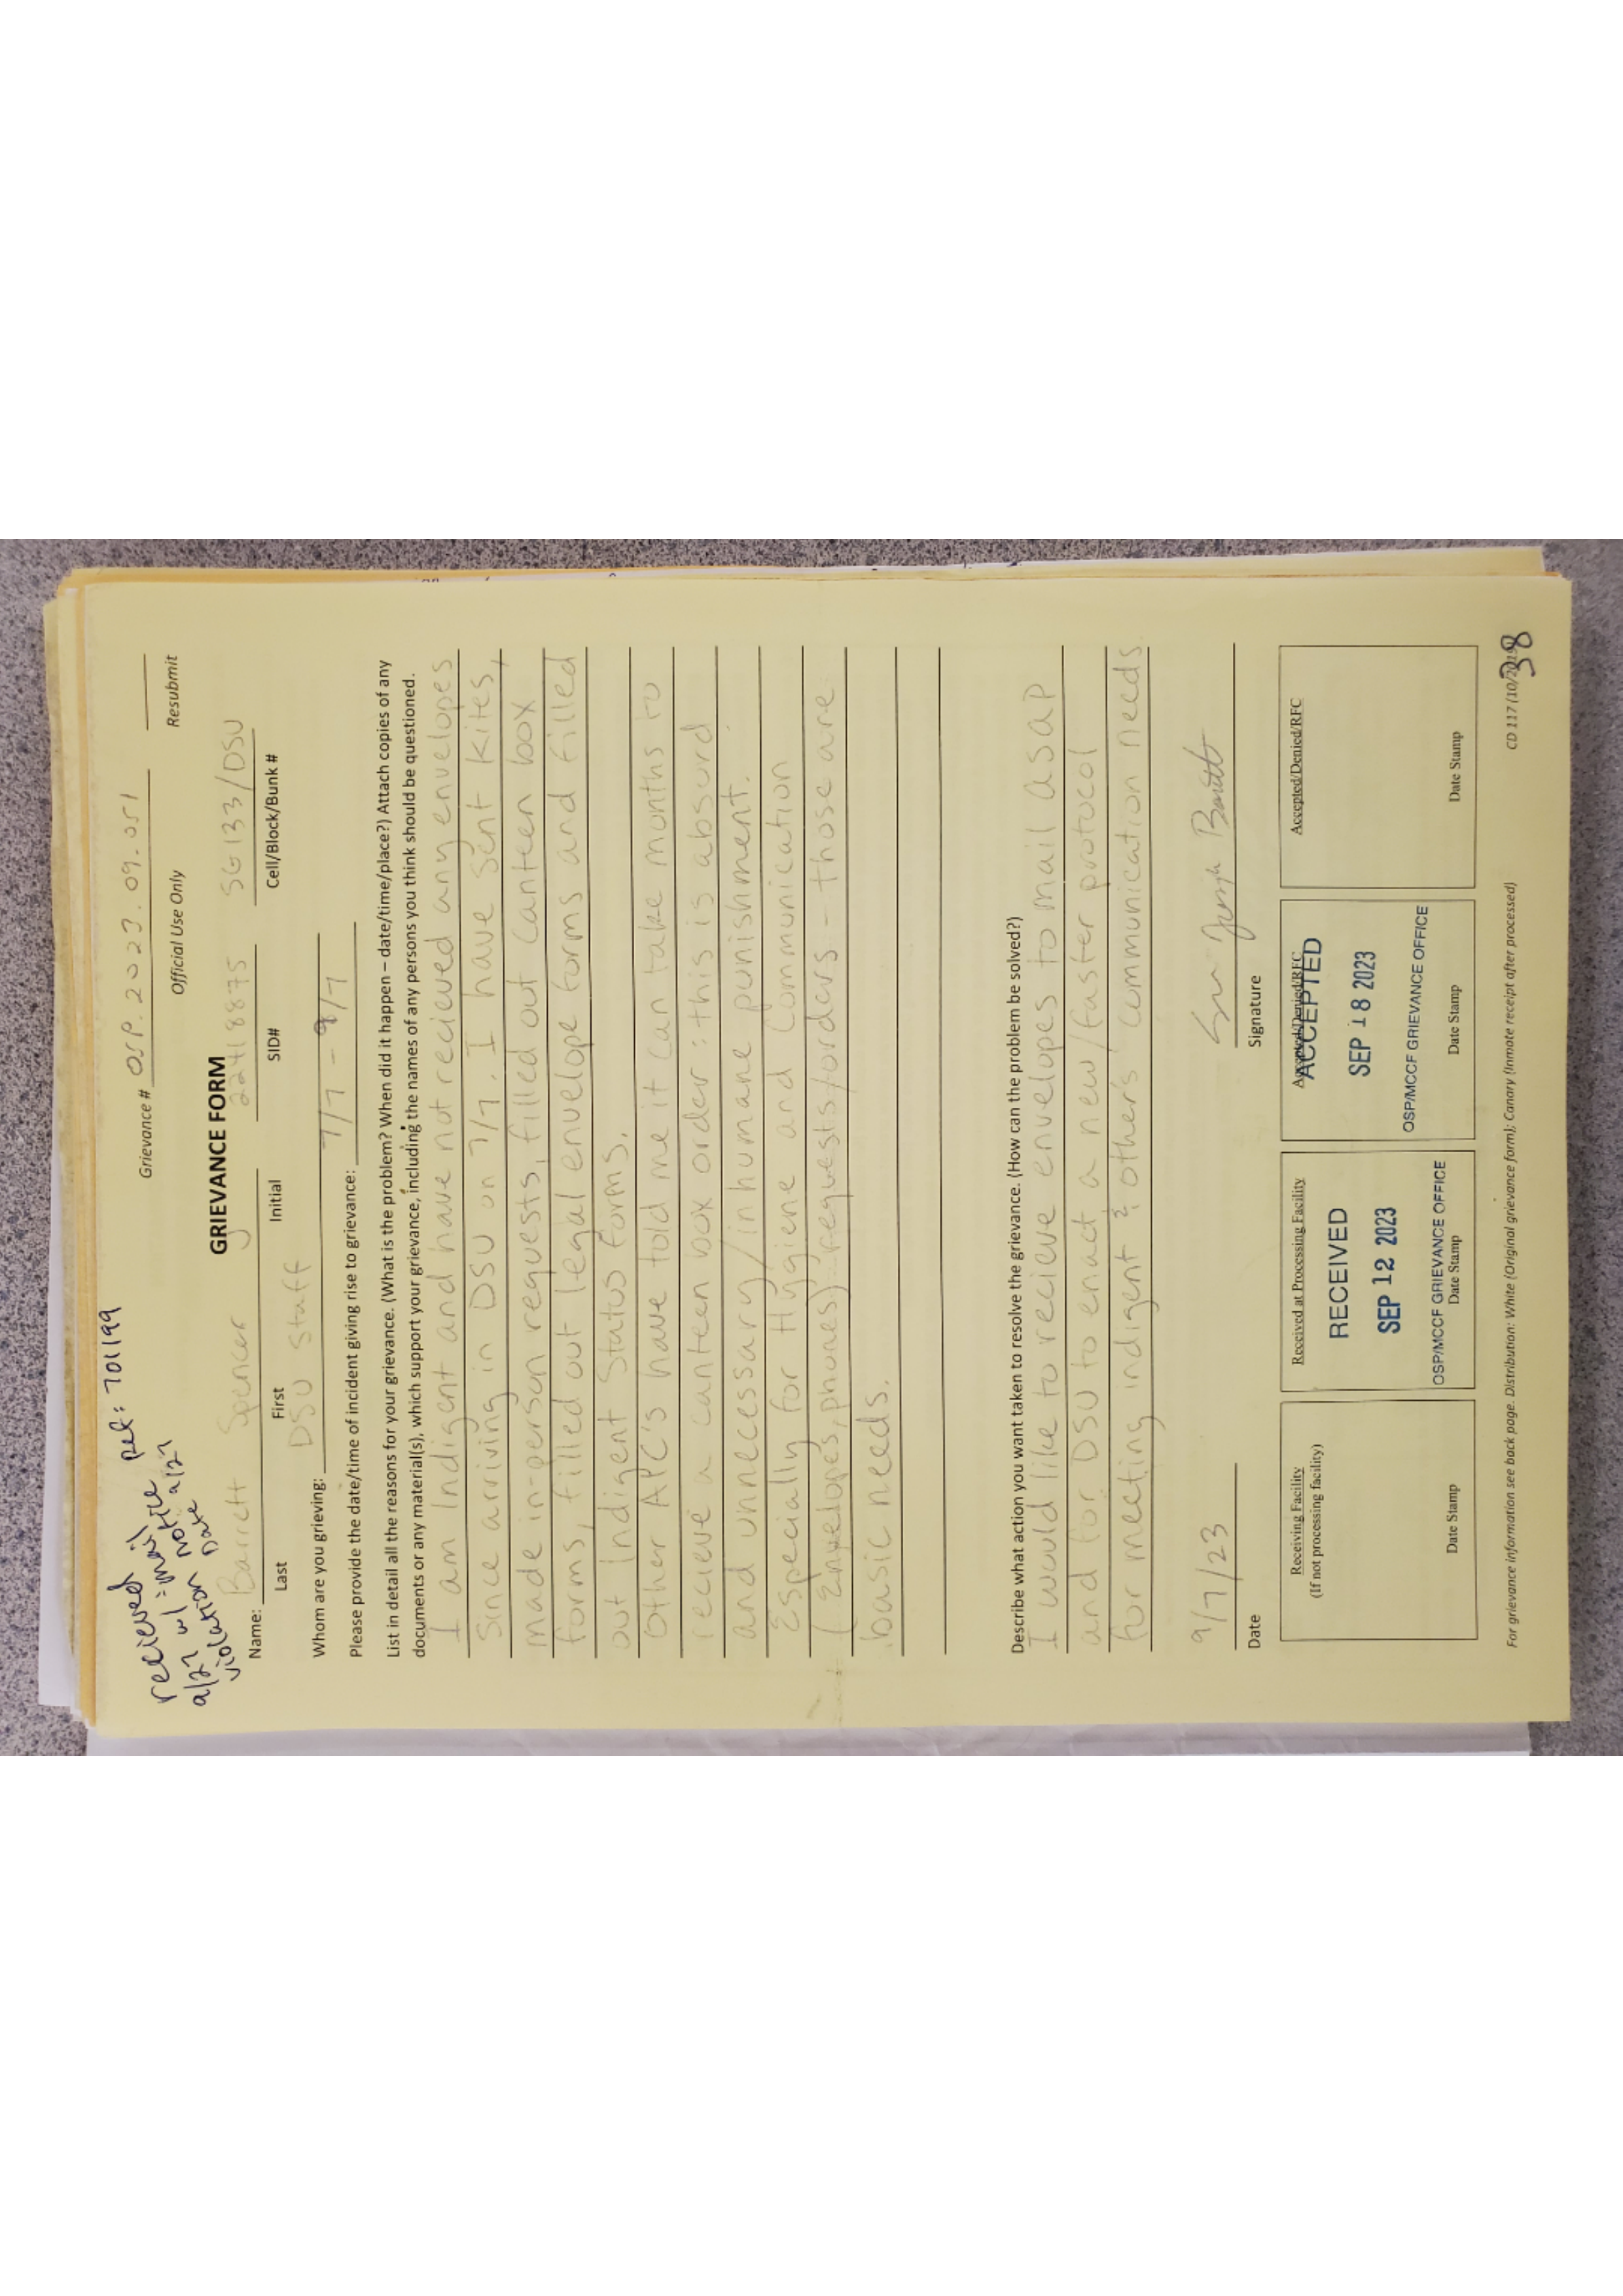 recieved pel: 701199
9/27 w/ mail
violation notice
Date 9/27
Grievance # OSP.2023.09.051
Official Use Only Resubmit
GRIEVANCE FORM
Name: Barrett Spencer J 22418875 SG133/DSU
Last First Initial SID# Cell/Block/Bunk #
Whom are you grieving: DSU Staff
Please provide the date/time of incident giving rise to grievance: 7/7 - 9/7
List in detail all the reasons for your grievance. (What is the problem? When did it happen – date/time/place?) Attach copies of any
documents or any material(s), which support your grievance, including the names of any persons you think should be questioned.
I am Indigent and have not recieved any envelopes
since arriving in DSU on 7/7. I have sent kites,
made in-person requests, filled out canteen box
forms, filled out legal envelope forms and filled
out Indigent Status forms.
Other APC's have told me it can take months to
recieve a canteen box order: this is absurd
and unnecessary/inhumane punishment.
Especially for Hygiene and Communication
(Envelopes, phones) requests/orders - those are
basic needs.
Describe what action you want taken to resolve the grievance. (How can the problem be solved?)
I would like to recieve envelopes to mail asap
and for DSU to enact a new/faster protocol
for meeting indigent & other's communication needs
9/7/23
Date Signature
Receiving Facility
(If not processing facility)
Date Stamp
Received at Processing Facility
RECEIVED
SEP 12 2023
OSP/MCCF GRIEVANCE OFFICE
Date Stamp
Accepted/Denied/RFC
ACCEPTED
SEP 18 2023
OSP/MCCF GRIEVANCE OFFICE
Date Stamp
Accepted/Denied/RFC
Date Stamp
For grievance information see back page. Distribution: White (Original grievance form); Canary (Inmate receipt after processed)
CD 117 (10/2019)
38